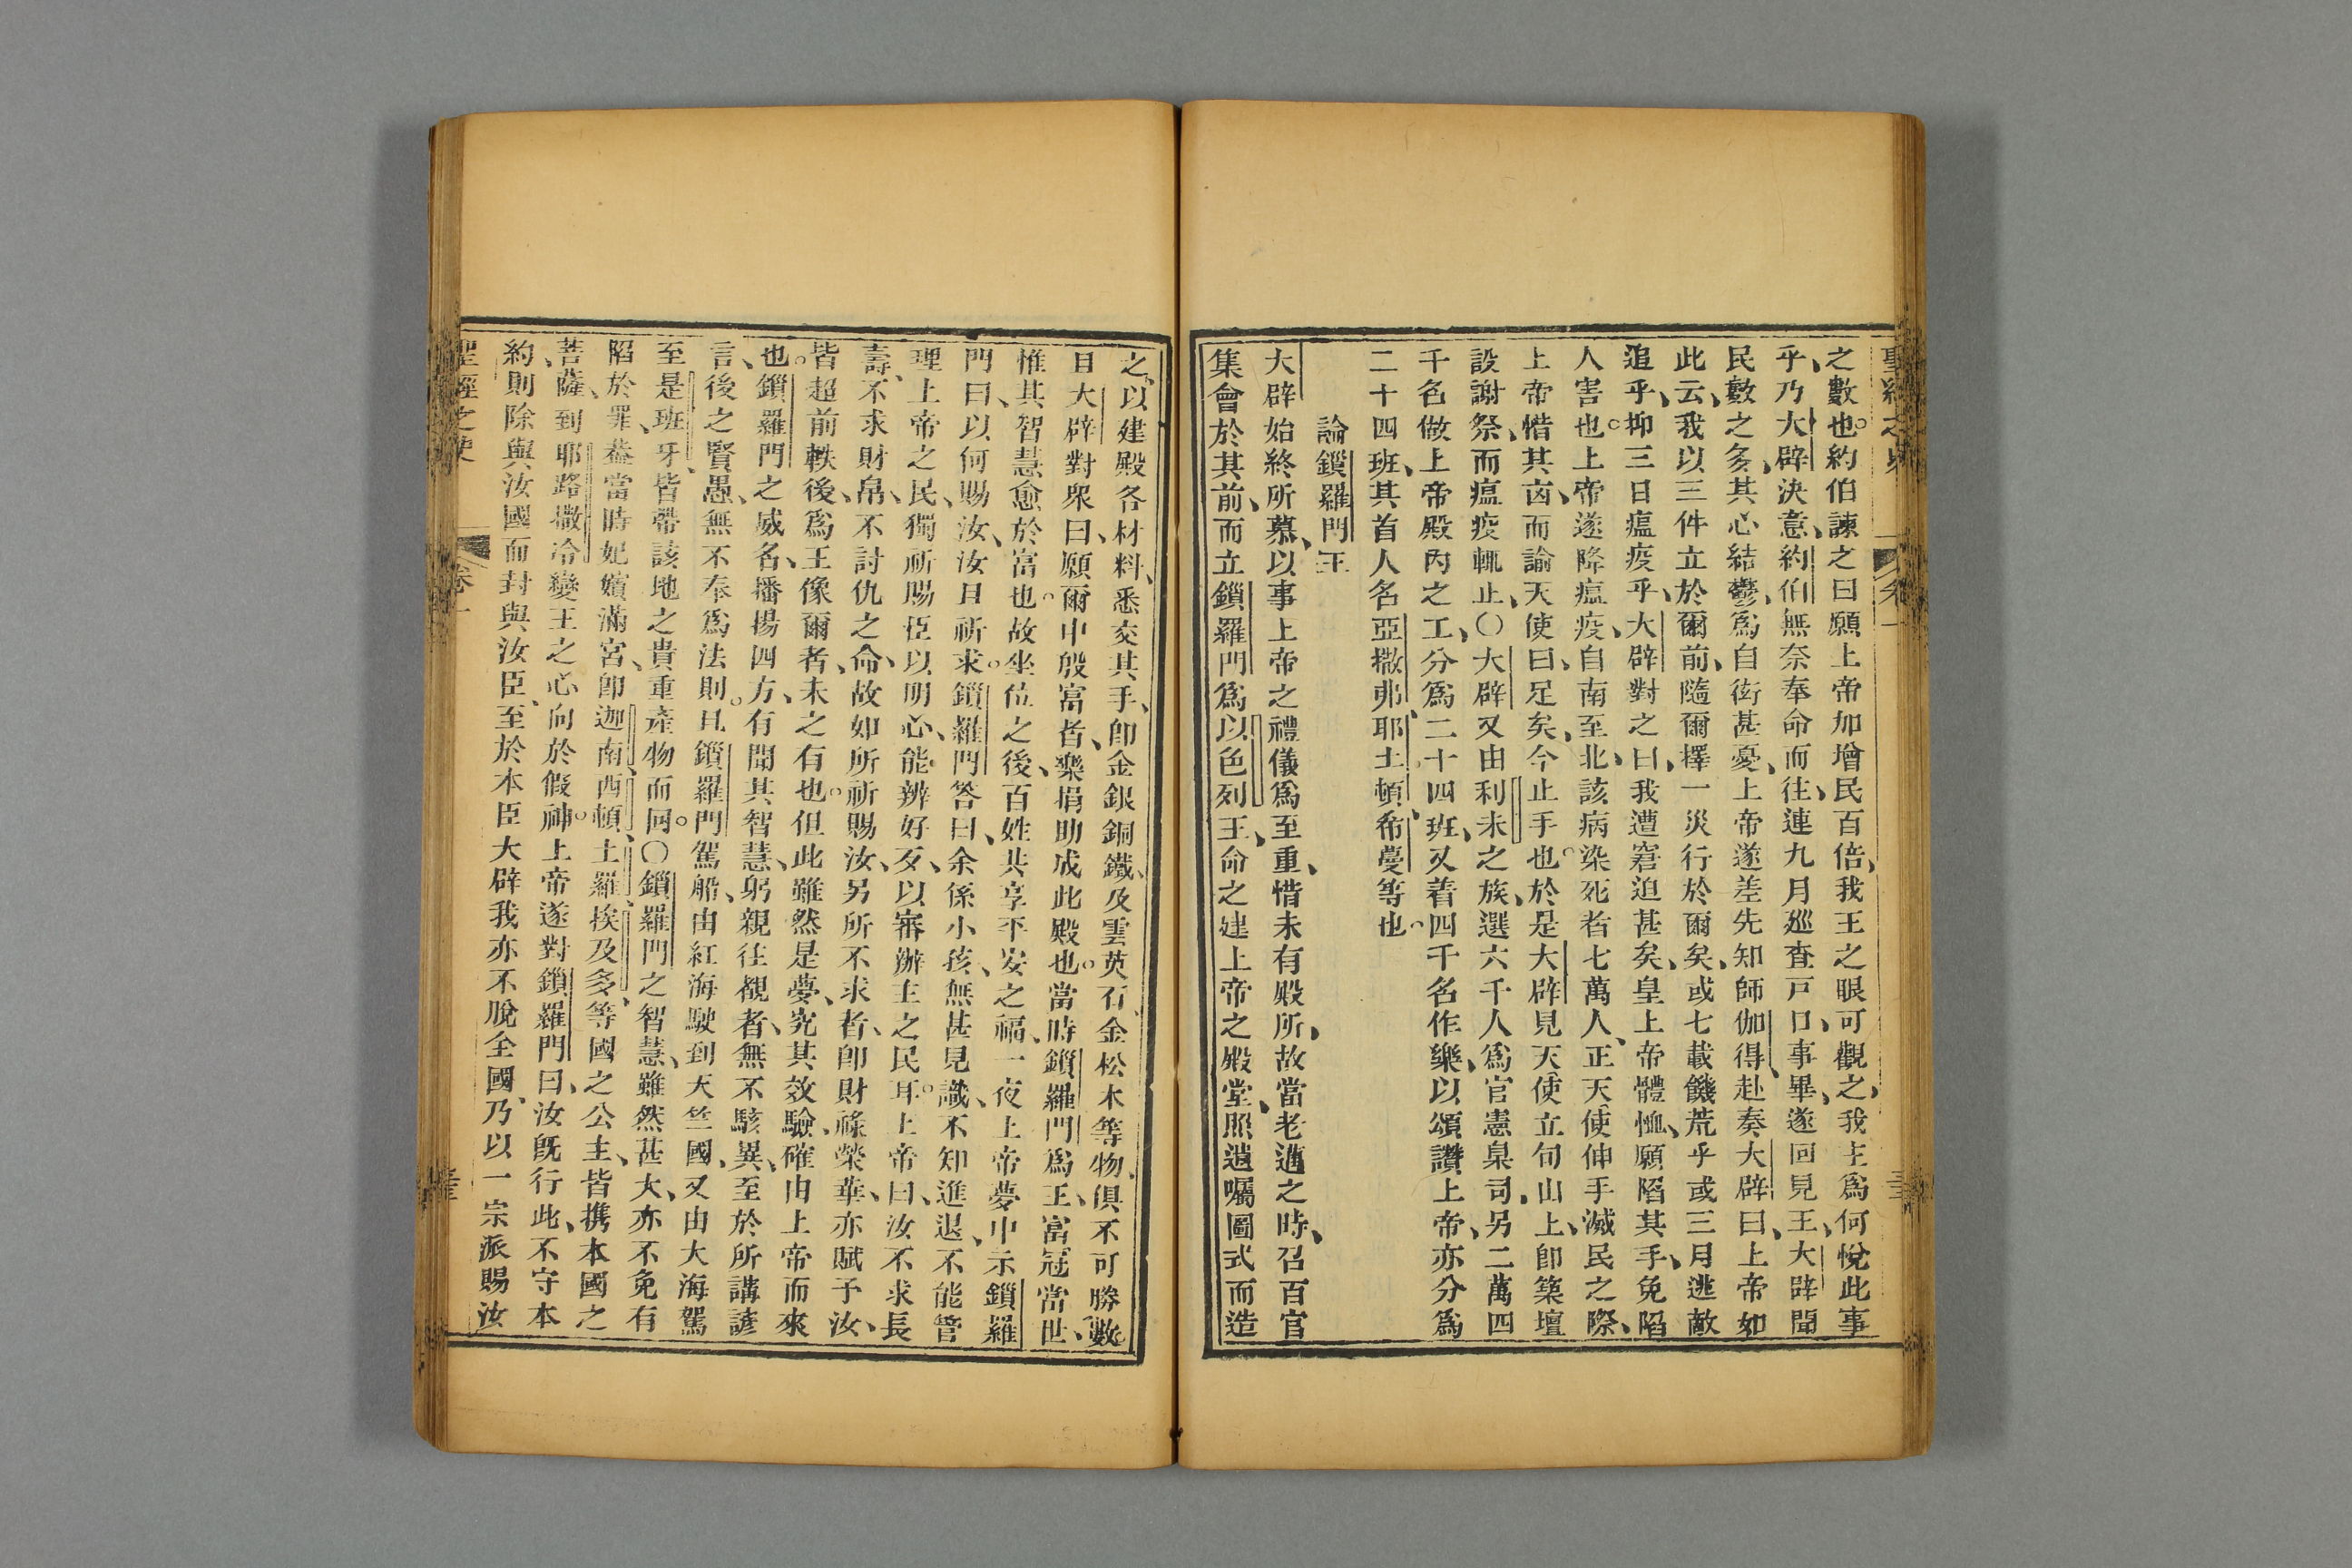 聖經之史 卷一
之數也。約伯諫之曰願上帝加增民百倍、我王之眼可觀之、我主爲何悅此事
乎、乃大辟決意、約伯無奈奉命而往、連九月廵查戸口、事畢、遂回見王、大辟聞
民數之多、其心結鬱、爲自衒甚憂、上帝遂差先知師伽得、赴奏大辟曰、上帝如
此云、我以三件立於爾前、隨爾擇一災行於爾矣、或七載饑荒乎或三月逃敵
追乎、抑三日瘟疫乎、大辟對之曰、我遭窘迫甚矣、皇上帝體恤、願陷其手、免陷
人害也。上帝遂降瘟疫、自南至北、該病染死者七萬人、正天使伸手滅民之際、
上帝惜其卤、而諭天使曰、足矣、今止手也。於是大辟見天使立旬山上、卽築壇
設謝祭、而瘟疫輒止、〇大辟又由利未之族、選六千人爲官憲臬司、另二萬四
千名做上帝殿內之工、分爲二十四班、又着四千名作樂、以頌讚上帝、亦分爲
二十四班、其首人名亞撒弗、耶土頓、希幔等也。
論鎖羅門王
大辟始終所慕、以事上帝之禮儀爲至重、惜未有殿所、故當老邁之時、召百官
集會於其前、而立鎖羅門爲以色列王、命之建上帝之殿堂、照遺囑圖式而造
之、以建殿各材料、悉交其手、卽金銀銅鐵、及雲英石、金松木等物、俱不可勝數
且大辟對衆曰、願爾中殷富者、樂捐助成此殿也。當時鎖羅門爲王、富冠當世、
惟其智慧愈於富也。故坐位之後、百姓共享平安之福、一夜上帝夢中示鎖羅
門曰、以何賜汝、汝且祈求。鎖羅門答曰、余係小孩、無甚見識、不知進退、不能管
理上帝之民、獨祈賜臣以明心、能辨好歹、以審辦主之民耳。上帝曰、汝不求長
壽、不求財帛、不討仇之命、故如所祈賜汝、另所不求者、卽財祿榮華、亦賦予汝、
皆超前軼後、爲王像爾者、未之有也。但此雖然是夢、究其效驗、確由上帝而來
也。鎖羅門之威名、播揚四方、有聞其智慧、躬親往覩者、無不駭異、至於所講諺
言、後之賢愚、無不奉爲法則。且鎖羅門駕船、由紅海駛到天竺國、又由大海駕
至是班牙、皆帶該地之貴重產物而囘。〇鎖羅門之智慧、雖然甚大、亦不免有
陷於罪、葢當時妃嬪滿宮、卽迦南、西頓、土羅、挨及多等國之公主、皆携本國之
菩薩、到耶路撒冷、變王之心向於假神。上帝遂對鎖羅門曰、汝旣行此、不守本
約、則除與汝國而封與汝臣、至於本臣大辟我亦不脫全國、乃以一宗派賜汝
聖經之史 卷一